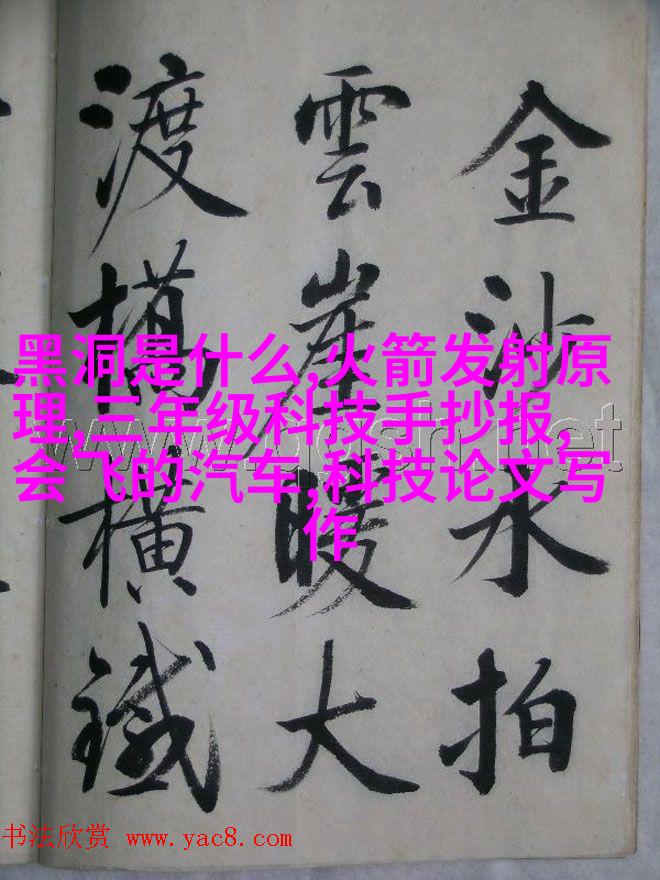 金沙水拍
雲崖暖大
渡橋橫鐵
黑洞是什么,火箭发射原
理,三年级科技手抄报,
会飞的汽车,科技论文写
作
书法欣赏 www.yac8.com